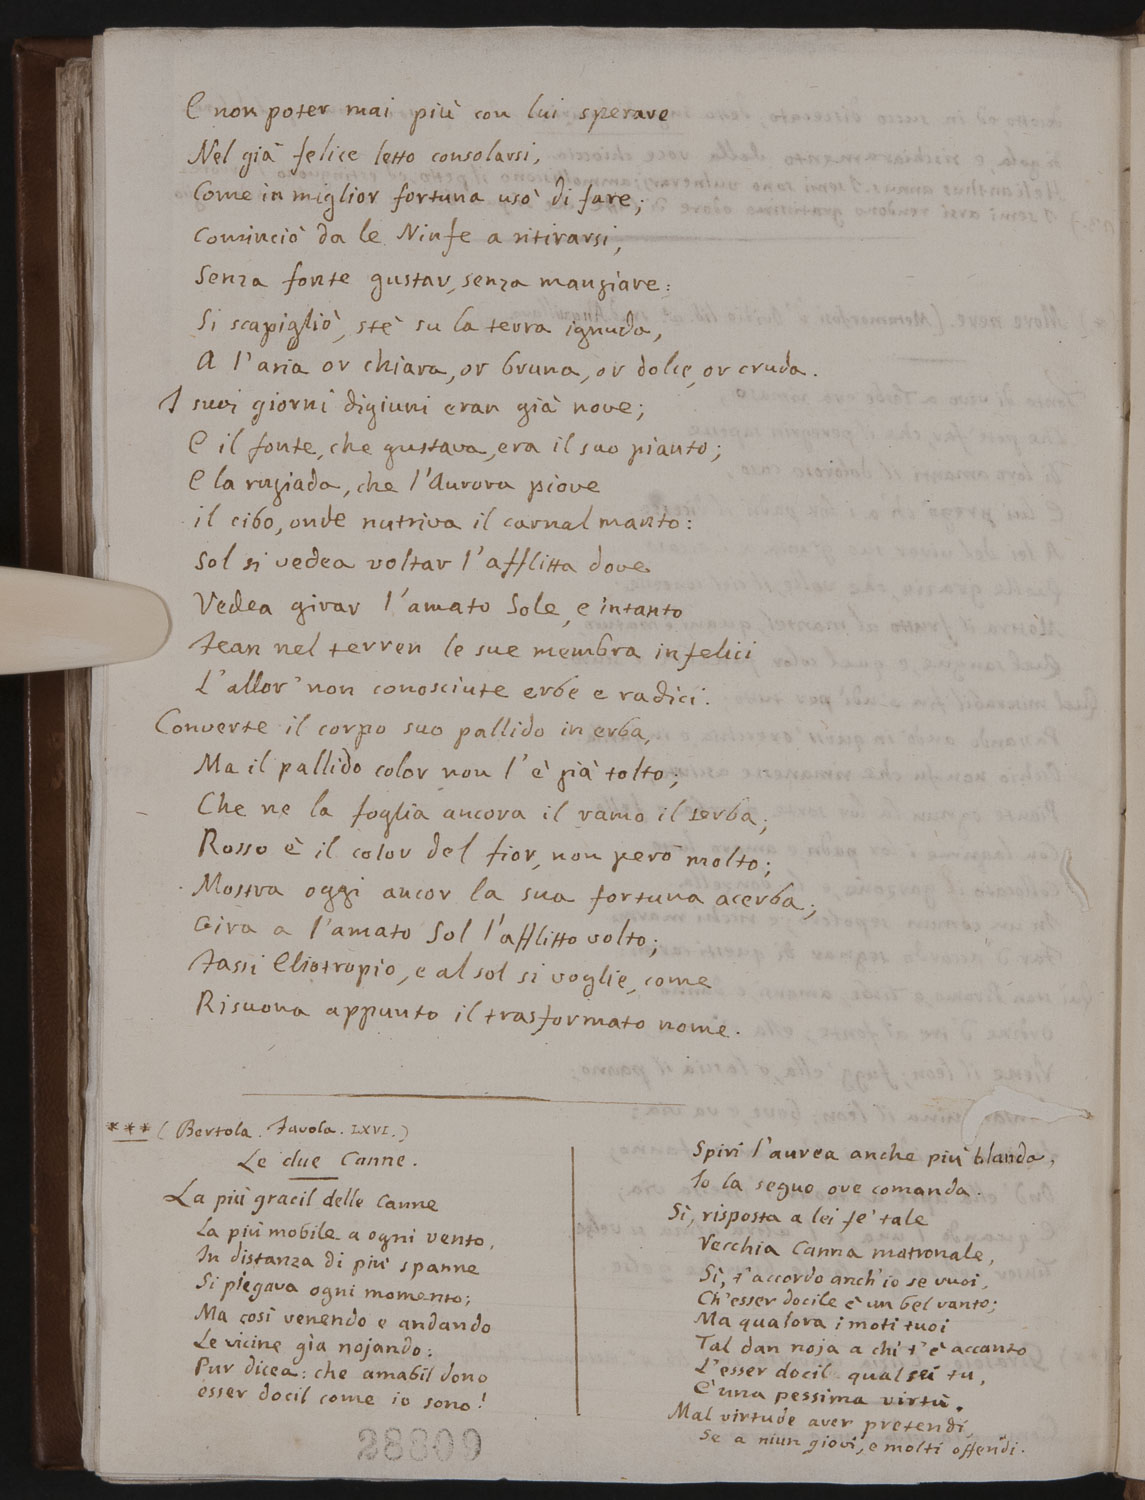 E non poter mai più con lui sperare
Nel già felice letto consolarsi,
Come in miglior fortuna usò di fare;
Cominciò da le Ninfe a ritirarsi,
Senza fonte gustar, senza mangiare:
Si scapigliò, stè su la terra ignuda,
A l'aria or chiara, or bruna, or dolce, or cruda.
I suoi giorni digiuni eran già nove;
E il fonte, che gustava, era il suo pianto;
E la rugiada, che l'Aurora piove
il cibo, onde nutriva il carnal manto:
Sol si vedea voltar l'afflitta dove
Vedea girar l'amato Sole, e intanto
Fean nel terren le sue membra infelici
L'allor' non conosciute erbe e radici.
Converte il corpo suo pallido in erba,
Ma il pallido color non l'è già tolto;
Che ne la foglia ancora il ramo il serba;
Rosso è il color del fior, non però molto;
Mostra oggi ancor la sua fortuna acerba;
Gira a l'amato Sol l'afflitto volto;
Fassi Eliotropio, e al sol si voglie, come
Risuona appunto il trasformato nome.
*** (Bertola. Favola. LXVI.)
Le due Canne.
La più gracil delle Canne
La più mobile a ogni vento,
In distanza di più spanne
Si piegava ogni momento;
Ma così venendo e andando
Le vicine gìa nojando:
Pur dicea: che amabil dono
esser docil come io sono!
Spiri l'aurea anche più blanda,
Io la seguo ove comanda.
Sì, risposta a lei fe' tale
Vecchia Canna matronale,
Sì, t'accordo anch'io se vuoi,
Ch'esser docile è un bel vanto;
Ma qualora i moti tuoi
Tal dan noja a chi t'è accanto
L'esser docil qual sei tu,
E' una pessima virtù.
Mal virtude aver pretendi,
Se a niun giovi, e molti offendi.
28809